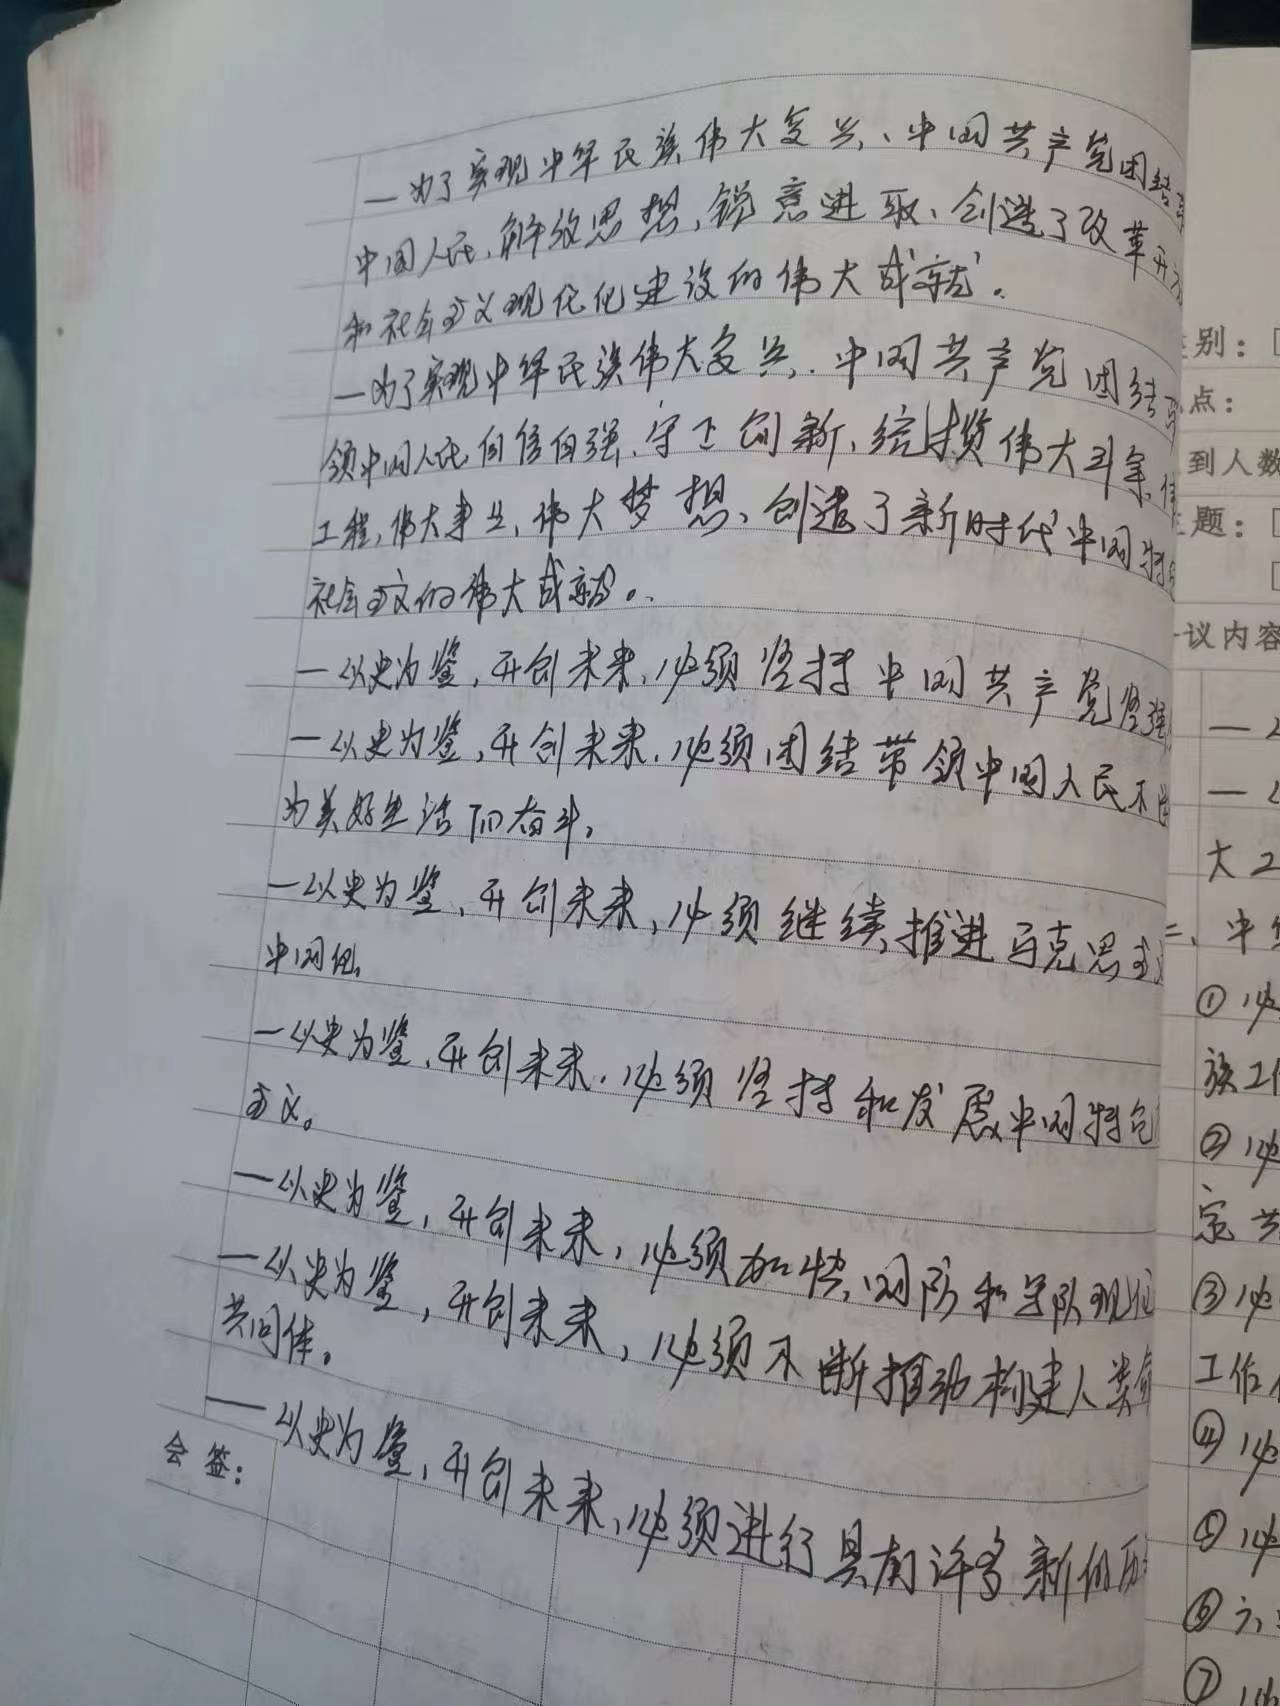 一为了实现中华民族伟大复兴、中国共产党团结
中国人民、解放思想，锐意进取、创造了改革开
和社会主义现代化建设的伟大成就。
一为了实现中华民族伟大复兴、中国共产党团结
领中国人民自信自强、守正创新、统揽伟大斗争、
工程，伟大事业，伟大梦想、创造了新时代中国特
社会主义的伟大成就。
一以史为鉴，开创未来，必须坚持中国共产党坚强
一以史为鉴，开创未来，必须团结带领中国人民不
为美好生活而奋斗。
一以史为鉴、开创未来，必须继续推进马克思主
中国化
一以史为鉴，开创未来，必须坚持和发展中国特色
主义。
一以史为鉴，开创未来，必须加快国防和军队现代
一以史为鉴，开创未来，必须不断推动构建人类命
共同体。
一以史为鉴，开创未来，必须进行具有许多新的历
会签：
别：
点：
到人数
题：
议内容
一
一
大工
二、中华
①必
族工作
②必
宗
③必
工作
④必
⑤必
⑥
⑦必